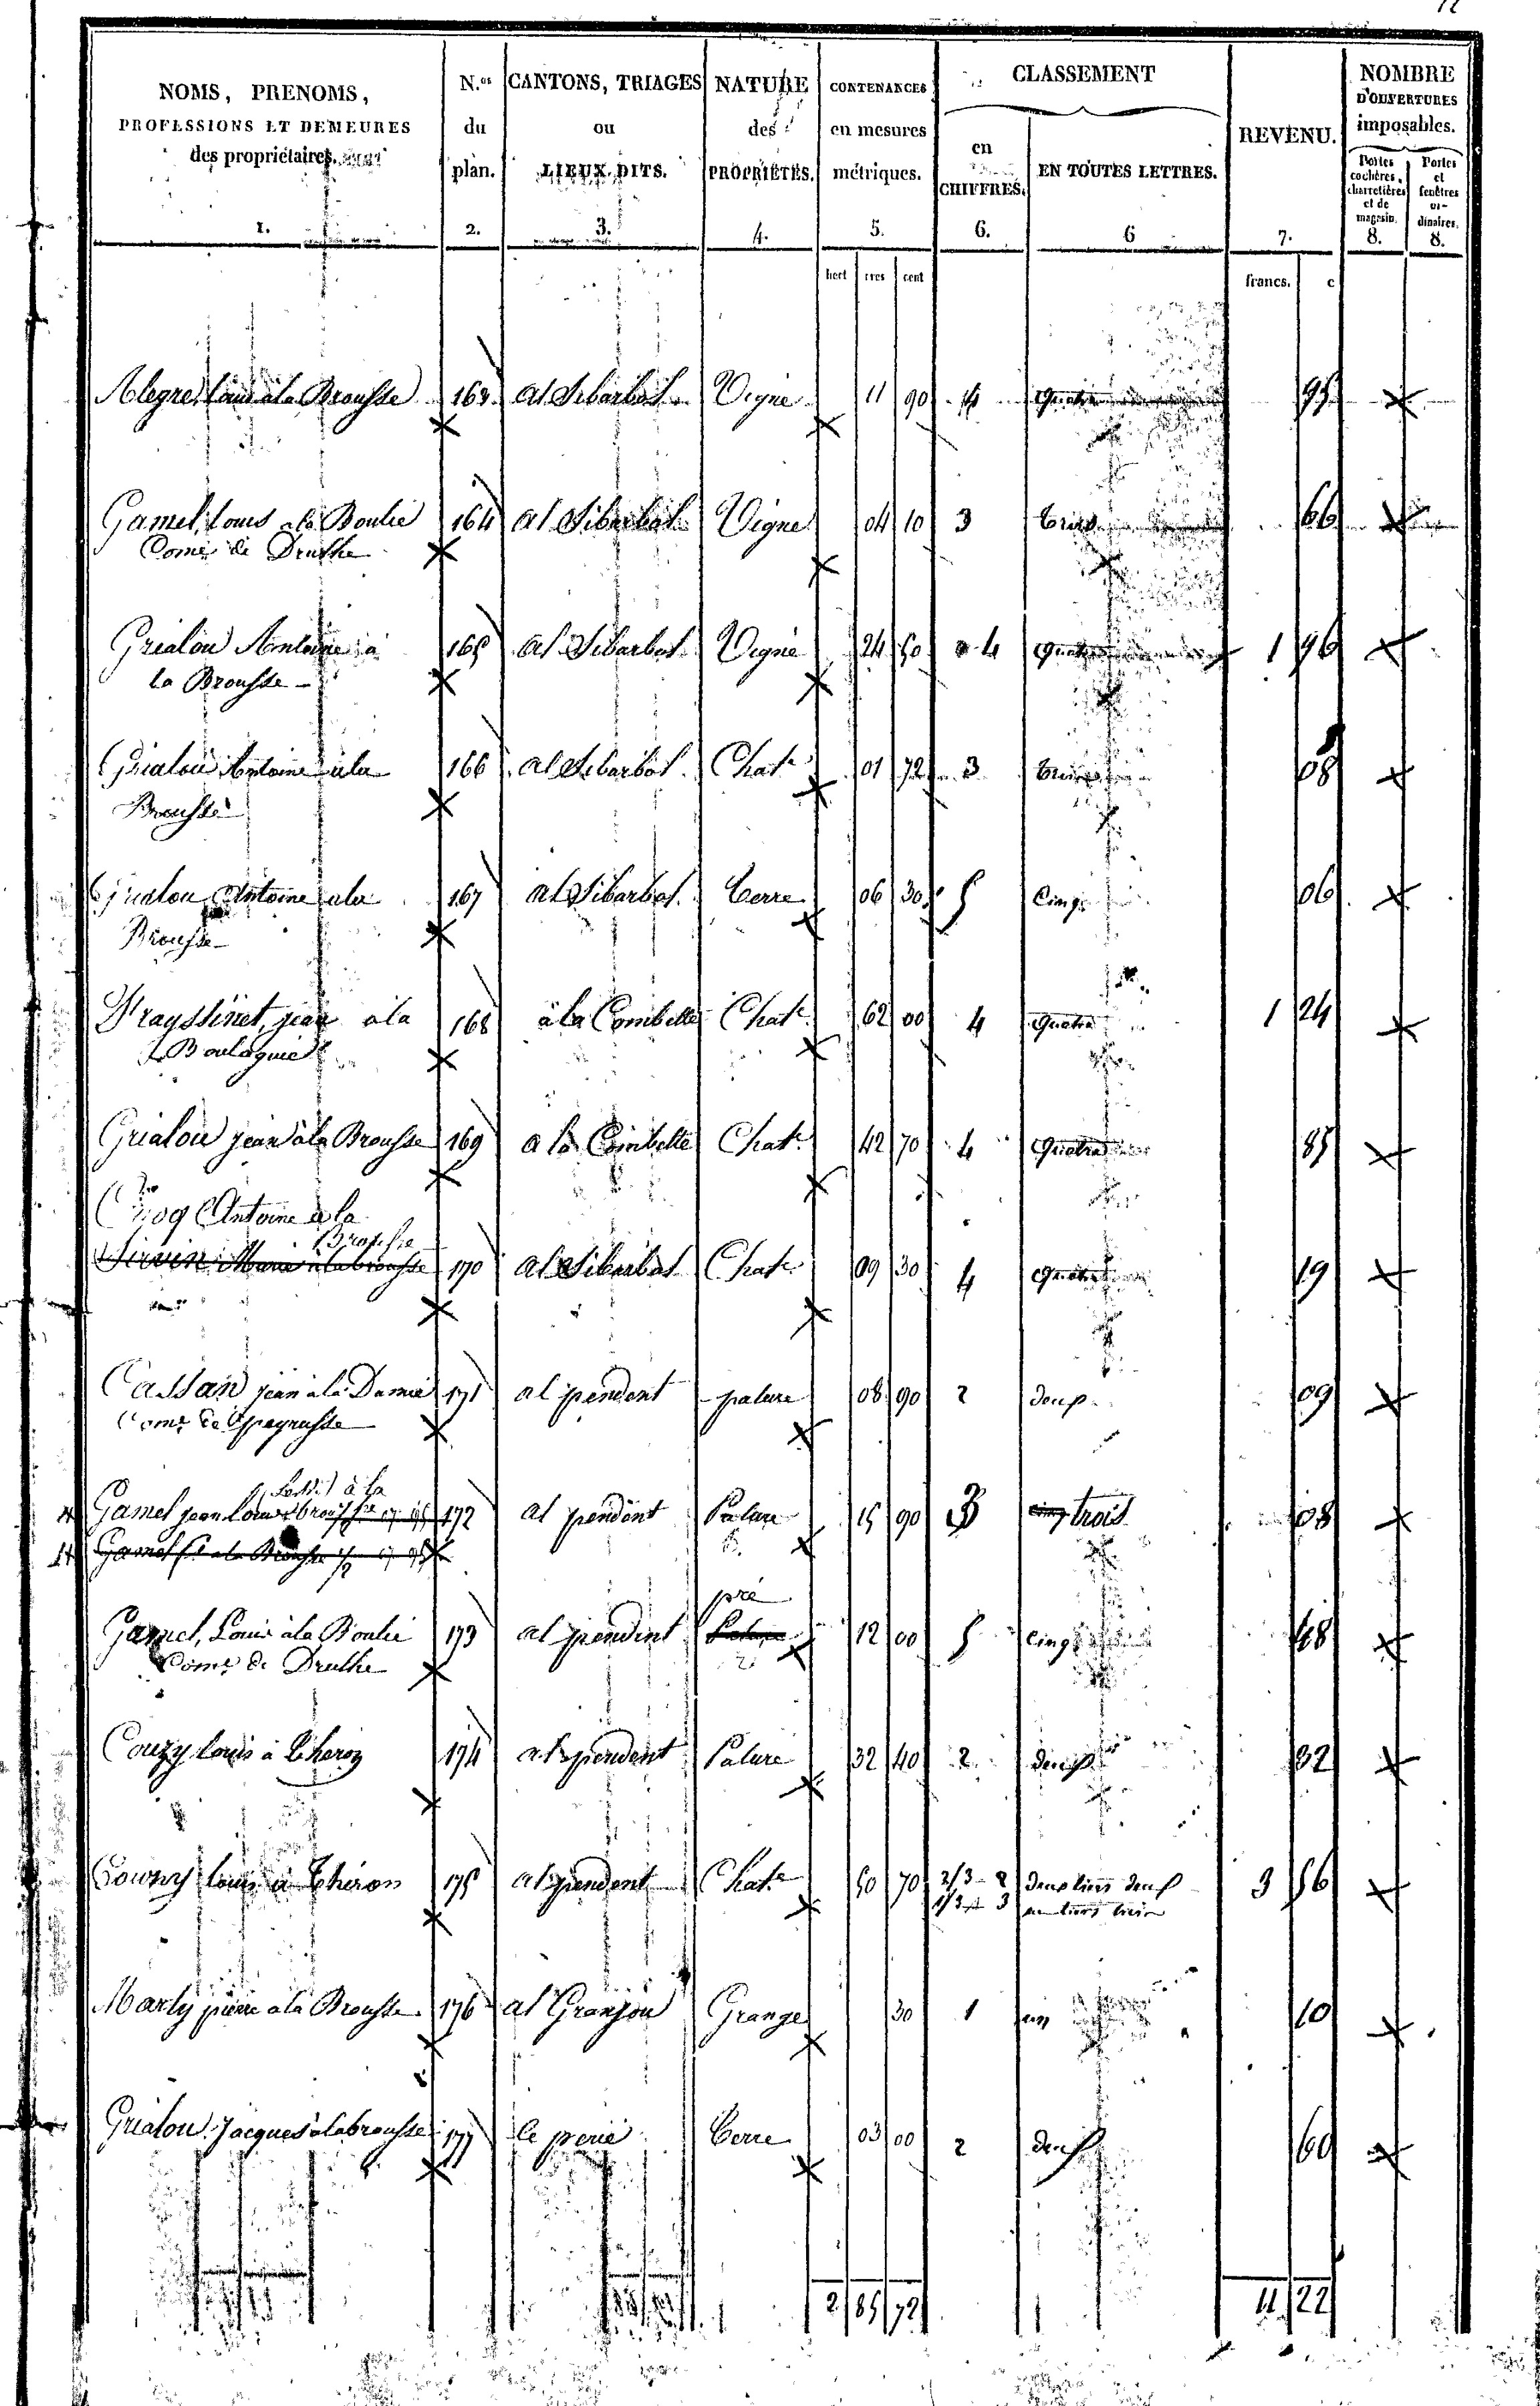 NOMS, PRENOMS,
PROFESSIONS ET DEMEURES
des propriétaires.
1.
N.os
du
plan.
2.
CANTONS, TRIAGES
ou
LIEUX DITS.
3.
NATURE
des
PROPRIÉTÉS.
4.
CONTENANCES
en mesures
métriques.
5.
CLASSEMENT
en
CHIFFRES.
6.
EN TOUTES LETTRES.
6
REVENU.
7.
NOMBRE
D'OUVERTURES
imposables.
Portes
cochères,
charretières
et de
magasin.
8.
Portes
et
fenêtres
or-
dinaires.
8.
hect ares cent
francs. c
Alegre, Louis à la Brousse 163 al Sibarbot Vigne 11 90 4 quatre 95
Gamel, Louis à la Boulie 164 al Sibarbot Vigne 04 10 3 trois 66
Come de Drulhe
Grialou Antoine à 165 al Sibarbot Vigne 24 50 4 quatre 1 96
la Brousse
Grialou Antoine à la 166 al Sibarbot Chat. 01 72 3 trois 08
Brousse
Grialou Antoine a la 167 al Sibarbot Terre 06 30 5 Cinq 06
Brousse
Frayssinet, jean à la 168 à la Combelle Chat. 62 00 4 quatre 1 24
Boulaguie
Grialou jean à la Brousse 169 a la Combelle Chat. 42 70 4 quatre 85
Antoine à la
Brousse
Sirvin Marie à la brousse 170 al Sibarbot Chat. 09 30 4 quatre 19
Cassan jean à la Damie 171 al pendent pature 08 90 2 deux 09
Come de peyrusse
à la
Gamel jean Louis brousse 172 al pendent Pature 15 90 3 cinq trois 08
Gamel a la Brousse 1/2
pré
Gamel, Louis à la Boulie 173 al pendent Pature 12 00 5 cinq 48
Come de Drulhe
Couzy louis à Theron 174 al pendent Pature 32 40 2 deux 32
Couzy louis à Théron 175 al pendent Chat. 50 70 2/3 2 deux tiers deux 3 56
1/3 3 un tiers trois
Marty pierre a la Brousse 176 al Granjou Grange 30 1 un 10
Grialou Jacques à la brousse 177 le perié Terre 03 00 2 deux 60
2 85 72 11 22